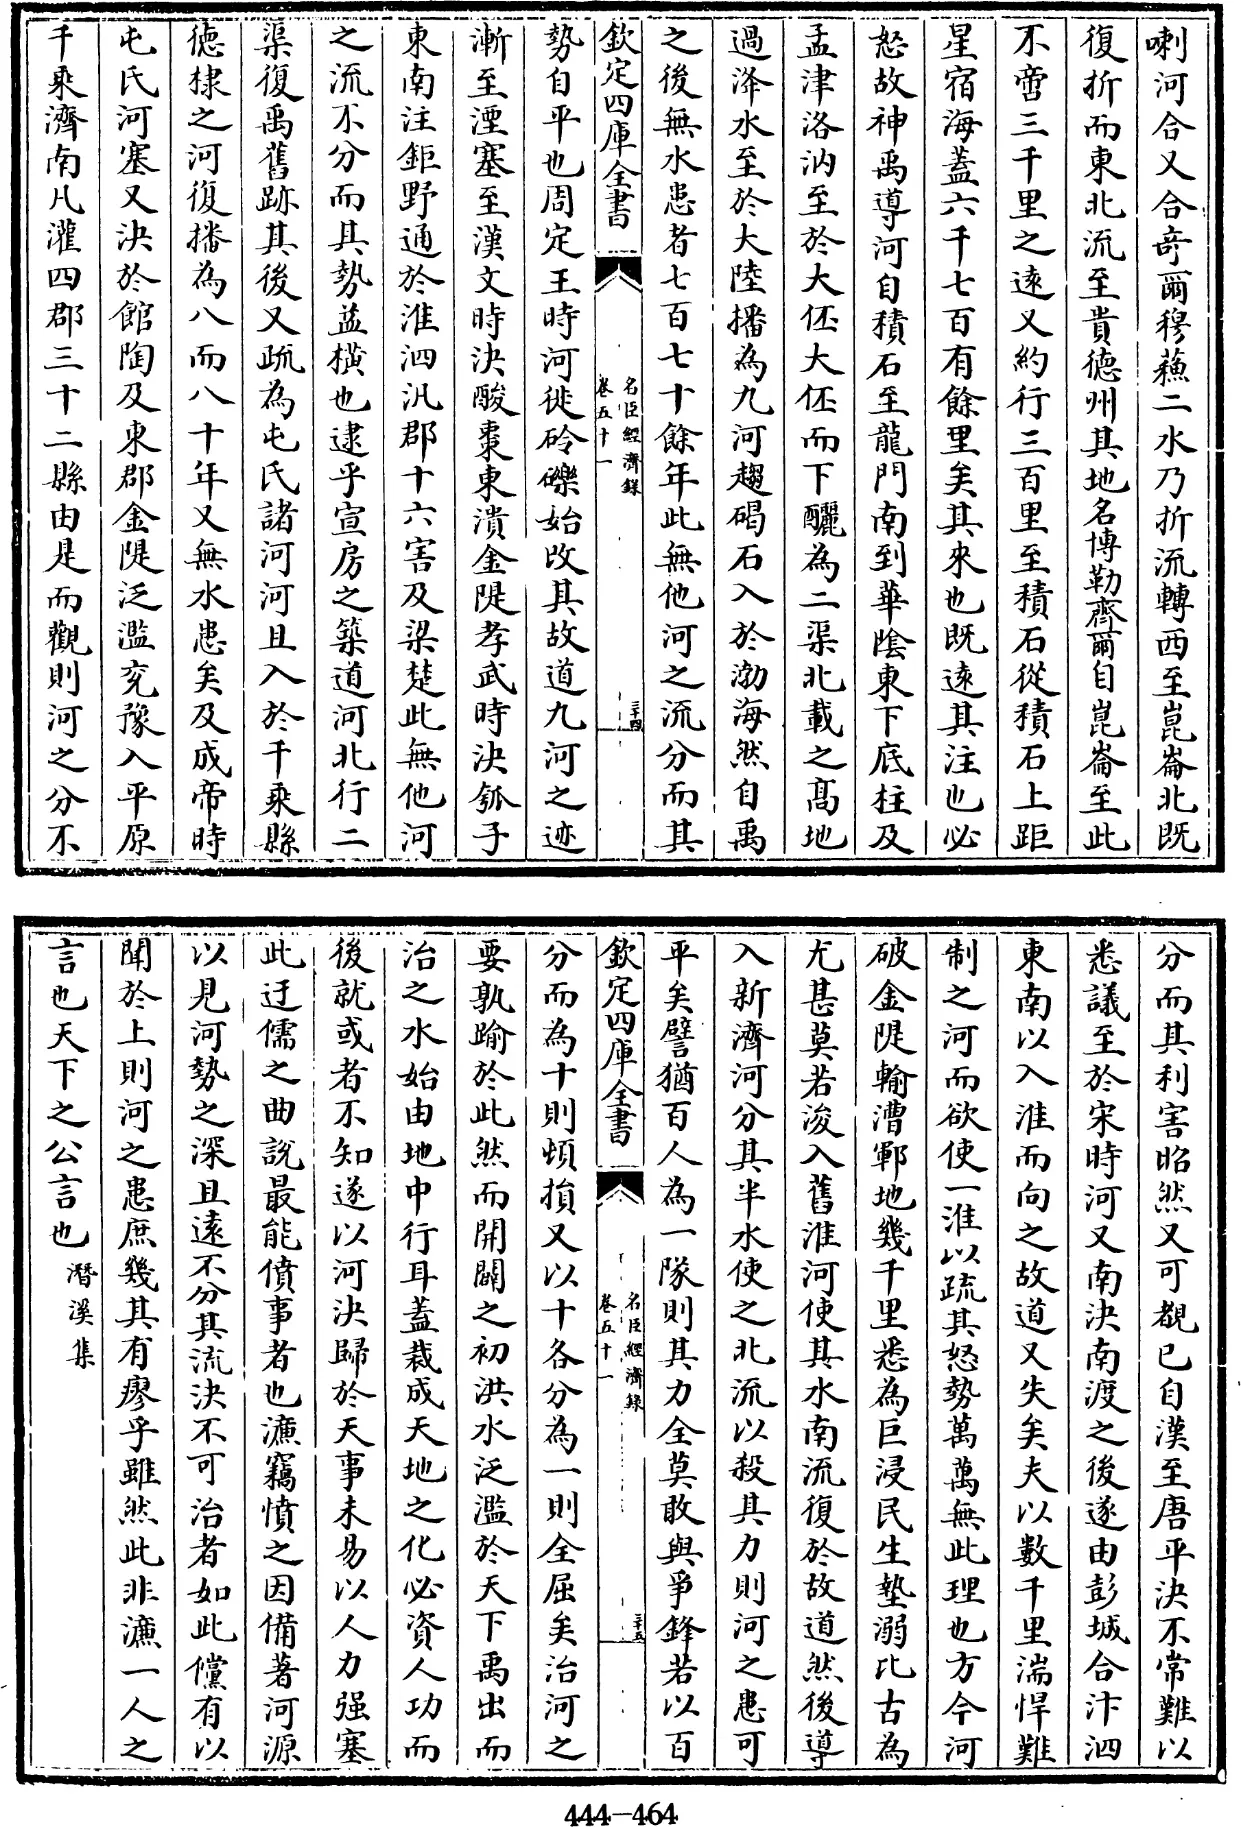 喇河合又合奇爾穆蘓二水乃折流轉西至崑崙北既
復折而東北流至貴德州其地名博勒齊爾自崑崙至此
不啻三千里之遠又約行三百里至積石從積石上距
星宿海蓋六千七百有餘里矣其來也既遠其注也必
怒故神禹導河自積石至龍門南到華陰東下底柱及
孟津洛汭至於大伾大伾而下釃為二渠北載之髙地
過洚水至於大陸播為九河趨碣石入於渤海然自禹
之後無水患者七百七十餘年此無他河之流分而其
欽定四庫全書
名臣經濟録
卷五十一
三十四
勢自平也周定王時河徙砱礫始改其故道九河之迹
漸至湮塞至漢文時決酸棗東潰金隄孝武時決瓠子
東南注鉅野通於淮泗汎郡十六害及梁楚此無他河
之流不分而其勢益橫也逮乎宣房之築道河北行二
渠復禹舊跡其後又疏為屯氏諸河河且入於千乘縣
德棣之河復播為八而八十年又無水患矣及成帝時
屯氏河塞又決於館陶及東郡金隄泛濫兖豫入平原
千乘濟南凡灌四郡三十二縣由是而觀則河之分不
分而其利害昭然又可覩已自漢至唐平決不常難以
悉議至於宋時河又南決南渡之後遂由彭城合汴泗
東南以入淮而向之故道又失矣夫以數千里湍悍難
制之河而欲使一淮以疏其怒勢萬萬無此理也方今河
破金隄輸漕鄆地幾千里悉為巨浸民生墊溺比古為
尤甚莫若浚入舊淮河使其水南流復於故道然後導
入新濟河分其半水使之北流以殺其力則河之患可
平矣譬猶百人為一隊則其力全莫敢與爭鋒若以百
欽定四庫全書
名臣經濟録
卷五十一
三十五
分而為十則頓損又以十各分為一則全屈矣治河之
要孰踰於此然而開闢之初洪水泛濫於天下禹出而
治之水始由地中行耳蓋裁成天地之化必資人功而
後就或者不知遂以河決歸於天事未易以人力强塞
此迂儒之曲說最能僨事者也濂竊憤之因備著河源
以見河勢之深且遠不分其流決不可治者如此儻有以
聞於上則河之患庶幾其有廖乎雖然此非濂一人之
言也天下之公言也 潛溪集
444-464